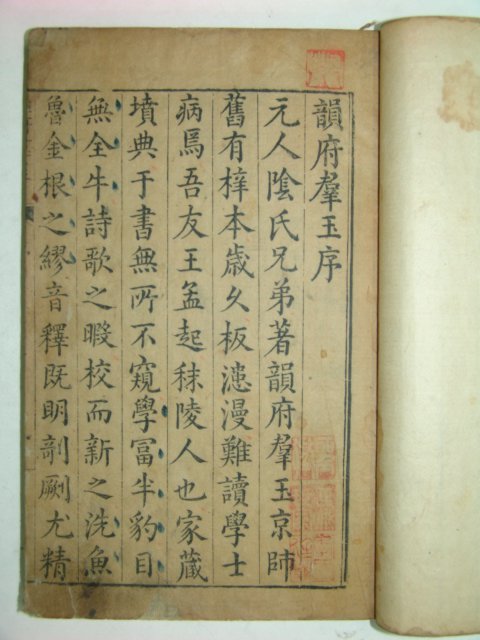 韻府羣玉序
元人陰氏兄弟著韻府羣玉京師
舊有梓本歲久板漶漫難讀學士
病焉吾友王孟起秣陵人也家藏
墳典于書無所不窺學冨半豹目
無全牛詩歌之暇校而新之洗魚
魯金根之繆音釋既明剞劂尤精